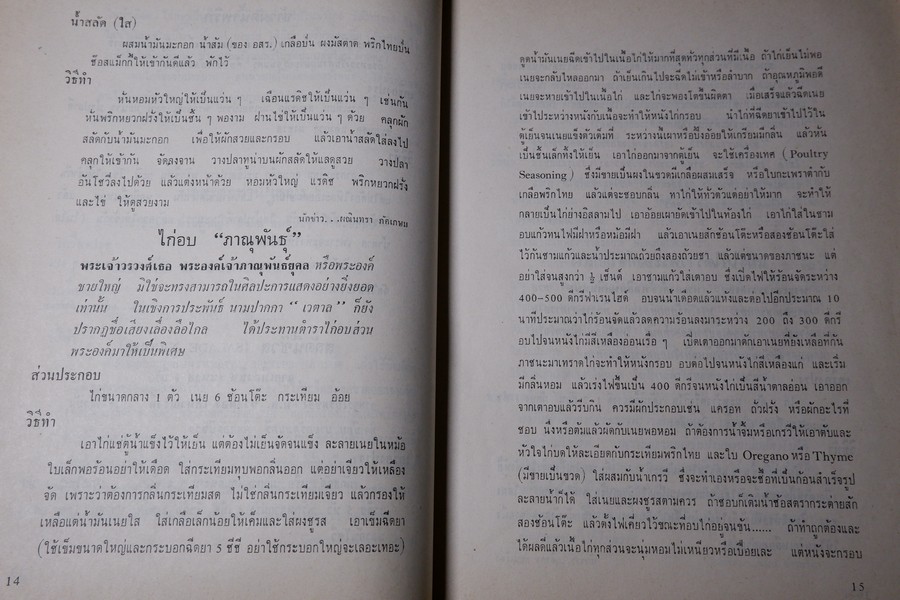 น้ำสลัด (ใส)
ผสมน้ำมันมะกอก น้ำส้ม (ของ อสร.) เกลือป่น ผงมัสตาด พริกไทยป่น
ซ้อสแม็กกี้ให้เข้ากันดีแล้ว พักไว้
วิธีทำ
หั่นหอมหัวใหญ่ให้เป็นแว่น ๆ เฉือนแรดิชให้เป็นแว่น ๆ เช่นกัน
หั่นพริกหยวกฝรั่งให้เป็นชิ้น ๆ พองาม ฝานไข่ให้เป็นแว่น ๆ ด้วย คลุกผัก
สลัดกับน้ำมันมะกอก เพื่อให้ผักสวยและกรอบ แล้วเอาน้ำสลัดใส่ลงไป
คลุกให้เข้ากัน จัดลงจาน วางปลาทูน่าบนผักสลัดให้แลดูสวย วางปลา
อันโชวี่ลงไปด้วย แล้วแต่งหน้าด้วย หอมหัวใหญ่ แรดิช พริกหยวกฝรั่ง
และไข่ ให้ดูสวยงาม
นักข่าว...ผณินทรา ภัคเกษม
ไก่อบ “ภาณุพันธุ์”
พระเจ้าวรวงศ์เธอ พระองค์เจ้าภาณุพันธ์ยุคล หรือพระองค์
ชายใหญ่ มิใช่จะทรงสามารถในศิลปะการแสดงอย่างยิ่งยอด
เท่านั้น ในเชิงการประพันธ์ นามปากกา “ เวตาล ” ก็ยัง
ปรากฏชื่อเสียงเลื่องลือไกล ได้ประทานตำราไก่อบส่วน
พระองค์มาให้เป็นพิเศษ
ส่วนประกอบ
ไก่ขนาดกลาง 1 ตัว เนย 6 ช้อนโต๊ะ กระเทียม อ้อย
วิธีทำ
เอาไก่แช่ตู้น้ำแข็งไว้ให้เย็น แต่ต้องไม่เย็นจัดจนแข็ง ละลายเนยในหม้อ
ใบเล็กพอร้อนอย่าให้เดือด ใส่กระเทียมทุบพอกลิ่นออก แต่อย่าเจียวให้เหลือง
จัด เพราะว่าต้องการกลิ่นกระเทียมสด ไม่ใช่กลิ่นกระเทียมเจียว แล้วกรองให้
เหลือแต่น้ำมันเนยใส ใส่เกลือเล็กน้อยให้เค็มและใส่ผงชูรส เอาเข็มฉีดยา
(ใช้เข็มขนาดใหญ่และกระบอกฉีดยา 5 ซีซี อย่าใช้กระบอกใหญ่จะเลอะเทอะ)
14
ดูดน้ำมันเนยฉีดเข้าไปในเนื้อไก่ให้มากที่สุดทั่วทุกส่วนที่มีเนื้อ ถ้าไก่เย็นไม่พอ
เนยจะกลับไหลออกมา ถ้าเย็นเกินไปจะฉีดไม่เข้าหรือลำบาก ถ้าอุณหภูมิพอดี
เนยจะหายเข้าไปในเนื้อไก่ และไก่จะพองโตขึ้นผิดตา เมื่อเสร็จแล้วฉีดเนย
เข้าไประหว่างหนังกับเนื้อจะทำให้หนังไก่กรอบ นำไก่ที่ฉีดยาเข้าไปไว้ใน
ตู้เย็นจนเนยแข็งตัวเต็มที่ ระหว่างนี้เผาหรือปิ้งอ้อยให้เกรียมมีกลิ่น แล้วหั่น
เป็นชิ้นเล็กทิ้งให้เย็น เอาไก่ออกมาจากตู้เย็น จะใช้เครื่องเทศ (Poultry
Seasoning) ซึ่งมีขายเป็นผงในขวดมีเกลือผสมเสร็จ หรือใบกะเพราตำกับ
เกลือพริกไทย แล้วแต่จะชอบกลิ่น ทาไก่ให้ทั่วตัวแต่อย่าให้มาก จะทำให้
กลายเป็นไก่ย่างอิสลามไป เอาอ้อยเผายัดเข้าไปในท้องไก่ เอาไก่ใส่ในชาม
อบแก้วทนไฟมีฝาหรือหม้อมีฝา แล้วเอาเนยสักช้อนโต๊ะหรือสองช้อนโต๊ะใส่
ไว้ก้นชามแก้วและน้ำประมาณถ้วยถึงสองถ้วยชา แล้วแต่ขนาดของภาชนะ แต่
อย่าใส่จนสูงกว่า ½ เซ็นต์ เอาชามแก้วใส่เตาอบ ซึ่งเปิดไฟให้ร้อนจัดระหว่าง
400-500 ดีกรีฟาเรนไฮด์ อบจนน้ำเดือดแล้วแห้งและต่อไปอีกประมาณ 10
นาทีประมาณว่าไก่ร้อนจัดแล้วลดความร้อนลงมาระหว่าง 200 ถึง 300 ดีกรี
อบไปจนหนังไก่มีสีเหลืองอ่อนเรื่อ ๆ เปิดเตาออกมาตักเอาเนยที่ยังเหลือที่ก้น
ภาชนะมาเทราดไก่จะทำให้หนังกรอบ อบต่อไปจนหนังไก่สีเหลืองแก่ และเริ่ม
มีกลิ่นหอม แล้วเร่งไฟขึ้นเป็น 400 ดีกรีจนหนังไก่เป็นสีน้ำตาลอ่อน เอาออก
จากเตาอบแล้วรีบกิน ควรมีผักประกอบเช่น แครอท ถั่วฝรั่ง หรือผักอะไรที่
ชอบ นึ่งหรือต้มแล้วผัดกับเนยพอหอม ถ้าต้องการน้ำจิ้มหรือเกรวี่ให้เอาตับและ
หัวใจไก่บดให้ละเอียดกับกระเทียมพริกไทย และใบ Oregano หรือ Thyme
(มีขายเป็นขวด) ใส่ผสมกับน้ำเกรวี่ ซึ่งจะทำเองหรือจะซื้อที่เป็นก้อนสำเร็จรูป
ละลายน้ำก็ได้ ใส่เนยและผงชูรสตามควร ถ้าชอบก็เติมน้ำซ้อสตรากระต่ายสัก
สองช้อนโต๊ะ แล้วตั้งไฟเคี่ยวไว้ขณะที่อบไก่อยู่จนข้น...... ถ้าทำถูกต้องและ
ได้ผลดีแล้วเนื้อไก่ทุกส่วนจะนุ่มหอมไม่เหนียวหรือเปื่อยเละ แต่หนังจะกรอบ
15